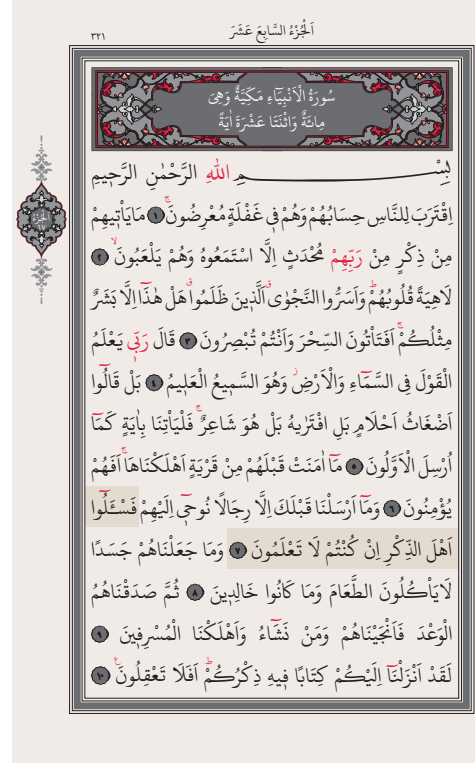 اَلْجُزْءُ السَّابِعَ عَشَرَ
٣٢١
سُورَةُ الْاَنْبِيَٓاءِ مَكِّيَّةٌ وَهِيَ
مِائَةٌ وَاثْنَتَا عَشْرَةَ اٰيَةً
بِسْمِ اللّٰهِ الرَّحْمٰنِ الرَّحِيمِ
اِقْتَرَبَ لِلنَّاسِ حِسَابُهُمْ وَهُمْ ف۪ي غَفْلَةٍ مُعْرِضُونَۚ ﴿١﴾ مَا يَأْت۪يهِمْ
مِنْ ذِكْرٍ مِنْ رَبِّهِمْ مُحْدَثٍ اِلَّا اسْتَمَعُوهُ وَهُمْ يَلْعَبُونَۙ ﴿٢﴾
لَاهِيَةً قُلُوبُهُمْۜ وَاَسَرُّوا النَّجْوٰىۗ اَلَّذ۪ينَ ظَلَمُواۗ هَلْ هٰذَٓا اِلَّا بَشَرٌ
مِثْلُكُمْۚ اَفَتَأْتُونَ السِّحْرَ وَاَنْتُمْ تُبْصِرُونَ ﴿٣﴾ قَالَ رَبّ۪ي يَعْلَمُ
الْقَوْلَ فِي السَّمَٓاءِ وَالْاَرْضِۘ وَهُوَ السَّم۪يعُ الْعَل۪يمُ ﴿٤﴾ بَلْ قَالُٓوا
اَضْغَاثُ اَحْلَامٍ بَلِ افْتَرٰيهُ بَلْ هُوَ شَاعِرٌۚ فَلْيَأْتِنَا بِاٰيَةٍ كَمَٓا
اُرْسِلَ الْاَوَّلُونَ ﴿٥﴾ مَٓا اٰمَنَتْ قَبْلَهُمْ مِنْ قَرْيَةٍ اَهْلَكْنَاهَاۚ اَفَهُمْ
يُؤْمِنُونَ ﴿٦﴾ وَمَٓا اَرْسَلْنَا قَبْلَكَ اِلَّا رِجَالًا نُوح۪ٓي اِلَيْهِمْ فَسْـَٔلُٓوا
اَهْلَ الذِّكْرِ اِنْ كُنْتُمْ لَا تَعْلَمُونَ ﴿٧﴾ وَمَا جَعَلْنَاهُمْ جَسَدًا
لَا يَأْكُلُونَ الطَّعَامَ وَمَا كَانُوا خَالِد۪ينَ ﴿٨﴾ ثُمَّ صَدَقْنَاهُمُ
الْوَعْدَ فَاَنْجَيْنَاهُمْ وَمَنْ نَشَٓاءُ وَاَهْلَكْنَا الْمُسْرِف۪ينَ ﴿٩﴾
لَقَدْ اَنْزَلْنَٓا اِلَيْكُمْ كِتَابًا ف۪يهِ ذِكْرُكُمْۜ اَفَلَا تَعْقِلُونَ۟ ﴿١٠﴾